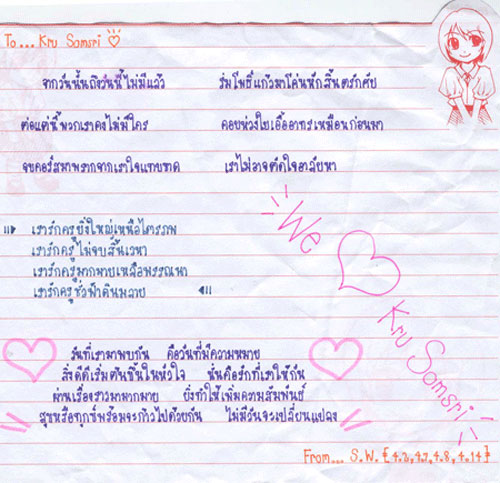 To... Kru Somsri ♡
จากวันนั้นถึงวันนี้ไม่มีแล้ว ร่มโพธิ์แก้วมาโค่นหักสิ้นศักดิ์ศรี
ต่อแต่นี้พวกเราคงไม่มีใคร คอยห่วงใยเอื้ออาทรเหมือนก่อนมา
จบคอร์สพาพรากจากเราใจแทบขาด เราไม่อาจตัดใจอาลัยหา
เรารักครูยิ่งใหญ่เหนือไตรภพ
เรารักครูไม่จบสิ้นเวหา
เรารักครูมากมายเหลือพรรณนา
เรารักครูชั่วฟ้าดินมลาย
We ♡ Kru Somsri
วันที่เรามาพบกัน คือวันที่มีความหมาย
สิ่งดีดีเริ่มต้นขึ้นในหัวใจ นั่นคือรักที่เราให้กัน
ผ่านเรื่องราวมากมาย ยิ่งทำให้เพิ่มความสัมพันธ์
สุขหรือทุกข์พร้อมจะก้าวไปด้วยกัน ไม่มีวันจะเปลี่ยนแปลง
From... S.W. {4.2, 4.7, 4.8, 4.14}